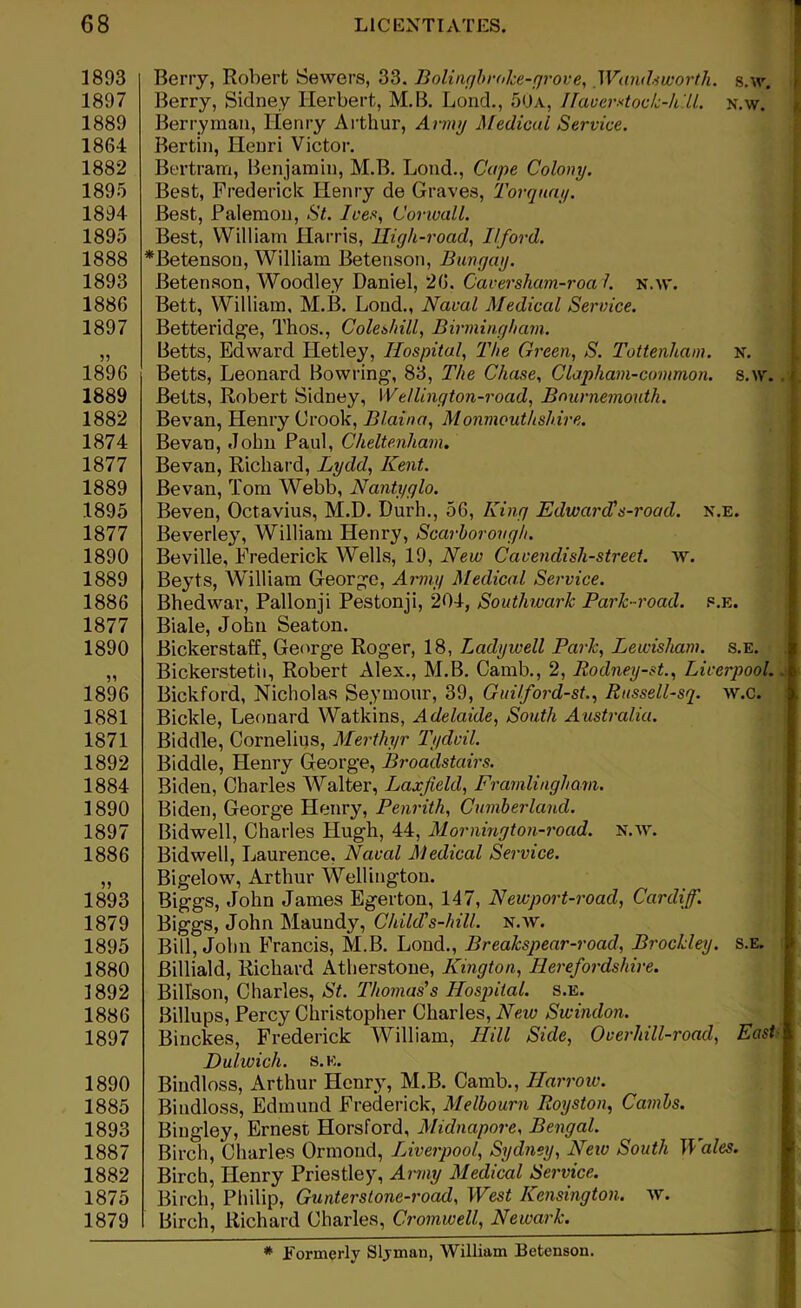 68 LICENTIATES.
1893 Berry, Robert Sewers, 33. Bolingbroke-grove, Wandsworth. S.W.
1897 Berry, Sidney Herbert, M.B. Lond., 50A, Haverstock-hill. N.W.
1889 Berryman, Henry Arthur, Army Medical Service.
1864 Bertin, Henri Victor.
1882 Bertram, Benjamin, M.B. Lond., Cape Colony.
1895 Best, Frederick Henry de Graves, Torquay.
1894 Best, Palemon, St. Ives, Corwall.
1895 Best, William Harris, High-road, Ilford.
1888 *Betenson, William Betenson, Bungay.
1893 Betenson, Woodley Daniel, 26. Caversham-road. N.W.
1886 Bett, William, M.B. Lond., Naval Medical Service.
1897 Betteridge, Thos., Coleshill, Birmingham.
„ Betts, Edward Hetley, Hospital, The Green, S. Tottenham. N.
1896 Betts, Leonard Bowring, 83, The Chase, Clapham-common. S.W.
1889 Betts, Robert Sidney, Wellington-road, Bournemouth.
1882 Bevan, Henry Crook, Blaina, Monmouthshire.
1874 Bevan, John Paul, Cheltenham.
1877 Bevan, Richard, Lydd, Kent.
1889 Bevan, Tom Webb, Nantyglo.
1895 Beven, Octavius, M.D. Durh., 56, King Edward's-road. N.E.
1877 Beverley, William Henry, Scarborough.
1890 Beville, Frederick Wells, 19, New Cavendish-street. W.
1889 Beyts, William George, Army Medical Service.
1886 Bhedwar, Pallonji Pestonji, 204, Southwark Park-road. S.E.
1877 Biale, John Seaton.
1890 Bickerstaff, George Roger, 18, Ladywell Park, Lewisham. S.E.
„ Bickersteth, Robert Alex., M.B. Camb., 2, Rodney-st., Liverpool.
1896 Bickford, Nicholas Seymour, 39, Guilford-st., Russell-sq. W.C.
1881 Bickle, Leonard Watkins, Adelaide, South Australia.
1871 Biddle, Cornelius, Merthyr Tydvil.
1892 Biddle, Henry George, Broadstairs.
1884 Biden, Charles Walter, Laxfield, Framlingham.
1890 Biden, George Henry, Penrith, Cumberland.
1897 Bidwell, Charles Hugh, 44, Mornington-road. N.W.
1886 Bidwell, Laurence, Naval Medical Service.
„ Bigelow, Arthur Wellington.
1893 Biggs, John James Egerton, 147, Newport-road, Cardiff.
1879 Biggs, John Maundy, Child's-hill. N.W.
1895 Bill, John Francis, M.B. Lond., Breakspear-road, Brockley. S.E.
1880 Billiald, Richard Atherstone, Kington, Herefordshire.
1892 Billson, Charles, St. Thomas's Hospital. S.E.
1886 Billups, Percy Christopher Charles, New Swindon.
1897 Binckes, Frederick William, Hill Side, Overhill-road, East
Dulwich. S.E.
1890 Bindloss, Arthur Henry, M.B. Camb., Harrow.
1885 Bindloss, Edmund Frederick, Melbourn Royston, Cambs.
1893 Bingley, Ernest Horsford, Midnapore, Bengal.
1887 Birch, Charles Ormond, Liverpool, Sydney, New South Wales.
1882 Birch, Henry Priestley, Army Medical Service.
1875 Birch, Philip, Gunterstone-road, West Kensington. W.
1879 Birch, Richard Charles, Cromwell, Newark.
* Formerly Slyman, William Betenson.